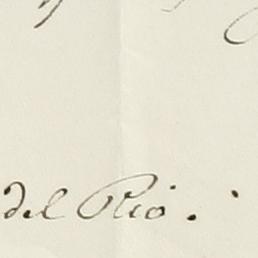 del Rio.